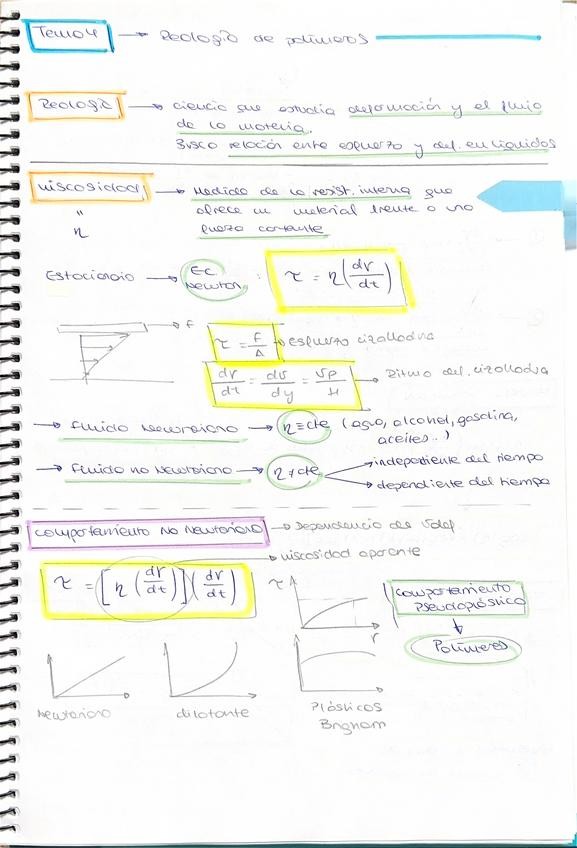 Tema 4 → Reología de polímeros
Reología → ciencia que estudia deformación y el flujo
de la materia.
Busca relación entre esfuerzo y def. en líquidos
viscosidad → Medida de la resist. interna que
" ofrece un material frente a una
η fuerza cortante
Estacionario → Ec Newton : τ = η(dr/dt)
→ F
τ = F/A → Esfuerzo cizalladura
dr/dt = dv/dy = Vp/H → Ritmo def. cizalladura
→ Fluido Newtoniano → η = cte (agua, alcohol, gasolina,
aceites..)
→ Fluido no Newtoniano → η ≠ cte → independiente del tiempo
→ dependiente del tiempo
Comportamiento No Newtoniano → Dependencia de Vdef
→ viscosidad aparente
τ = [η(dr/dt)](dr/dt)
τ
r
Comportamiento
Pseudoplástico
Polímeros
Newtoniano
dilatante
Plásticos
Bngham